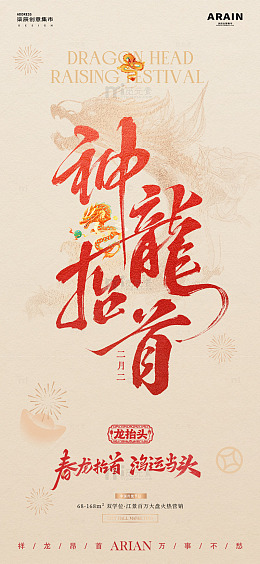 ADDRESS
柒辰创意集市
DESIGN
ARAIN
DRAGON HEAD
RAISING FESTIVAL
神龍
抬首
二月二
龙抬头
春龙抬首 鸿运当头
68-168m² 双学位·江景百万大盘火热营销
祥/龙/昂/首 ARIAN 万/事/不/愁